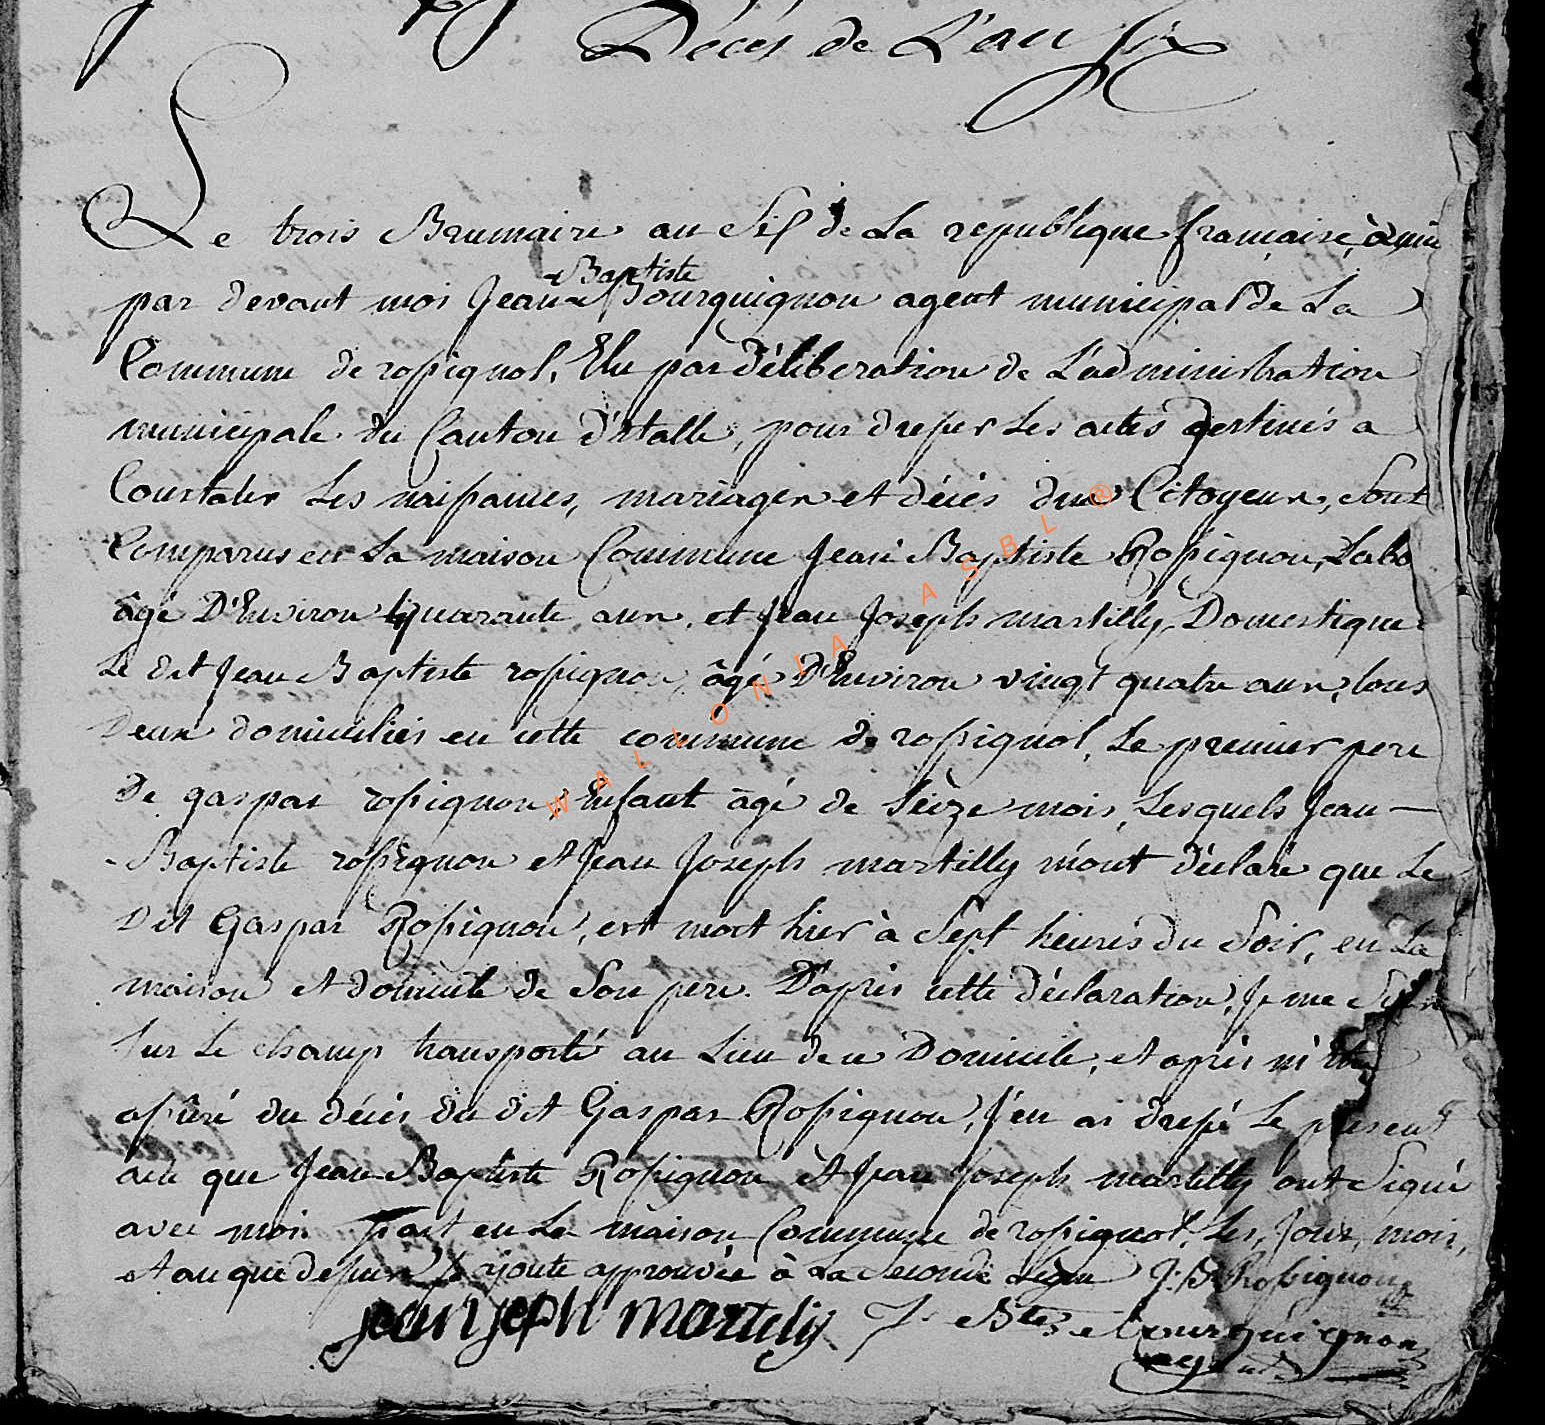 Décès de L'an Six
Le trois Brumaire an Six de La republique française, à midi
-Baptiste
par devant moi Jean Bourquignon agent municipal de La
Commune de rossignol, Elu par déliberation de L'administration
municipale du Canton d'étalle, pour dresser Les actes destinés a
Constater Les naissances, mariages et décès des Citoyens, Sont
Comparus en La maison Commune Jean Baptiste Rossignon, Labo
âgé D'Environ quarante ans, et Jean Joseph martilly, Domestique
Le dit Jean Baptiste rossignon, âgé D'Environ vingt quatre ans, tous
Deux domiciliés en cette commune de rossignol, Le premier pere
De gaspar rossignon, Enfant âgé de Seize mois, Lesquels Jean —
-Baptiste rossignon et Jean Joseph martilly m'ont déclaré que Le
Dit Gaspar Rossignon, est mort hier à Sept heures du Soir, en La
maison et domicile de Son pere. D'après cette déclaration, Je me Suis
Sur Le champ transporté au Lieu de ce Domicile, et après m'etre
assuré du décès du dit Gaspar Rossignon, J'en ai dressé Le present
acte que Jean Baptiste Rossignon et Jean Joseph martilly ont Signé
avec moi. fait en La maison Commune de rossignol, Les, Jour, mois,
et an que dessus ajoute approuvée à La Seconde Ligne J:B Rossignon
jean joseph martely J. Bte Bourquignon
agent
WALLONIA ASBL @